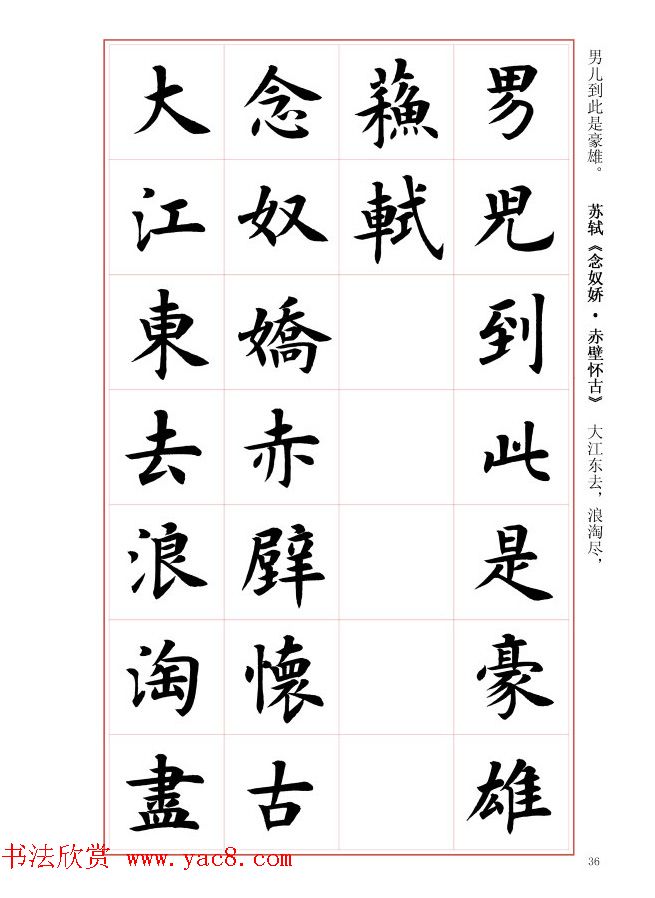 男儿到此是豪雄。 苏轼《念奴娇·赤壁怀古》 大江东去，浪淘尽，
男兒到此是豪雄
蘓軾
念奴嬌赤壁懷古
大江東去浪淘盡
书法欣赏 www.yac8.com
36